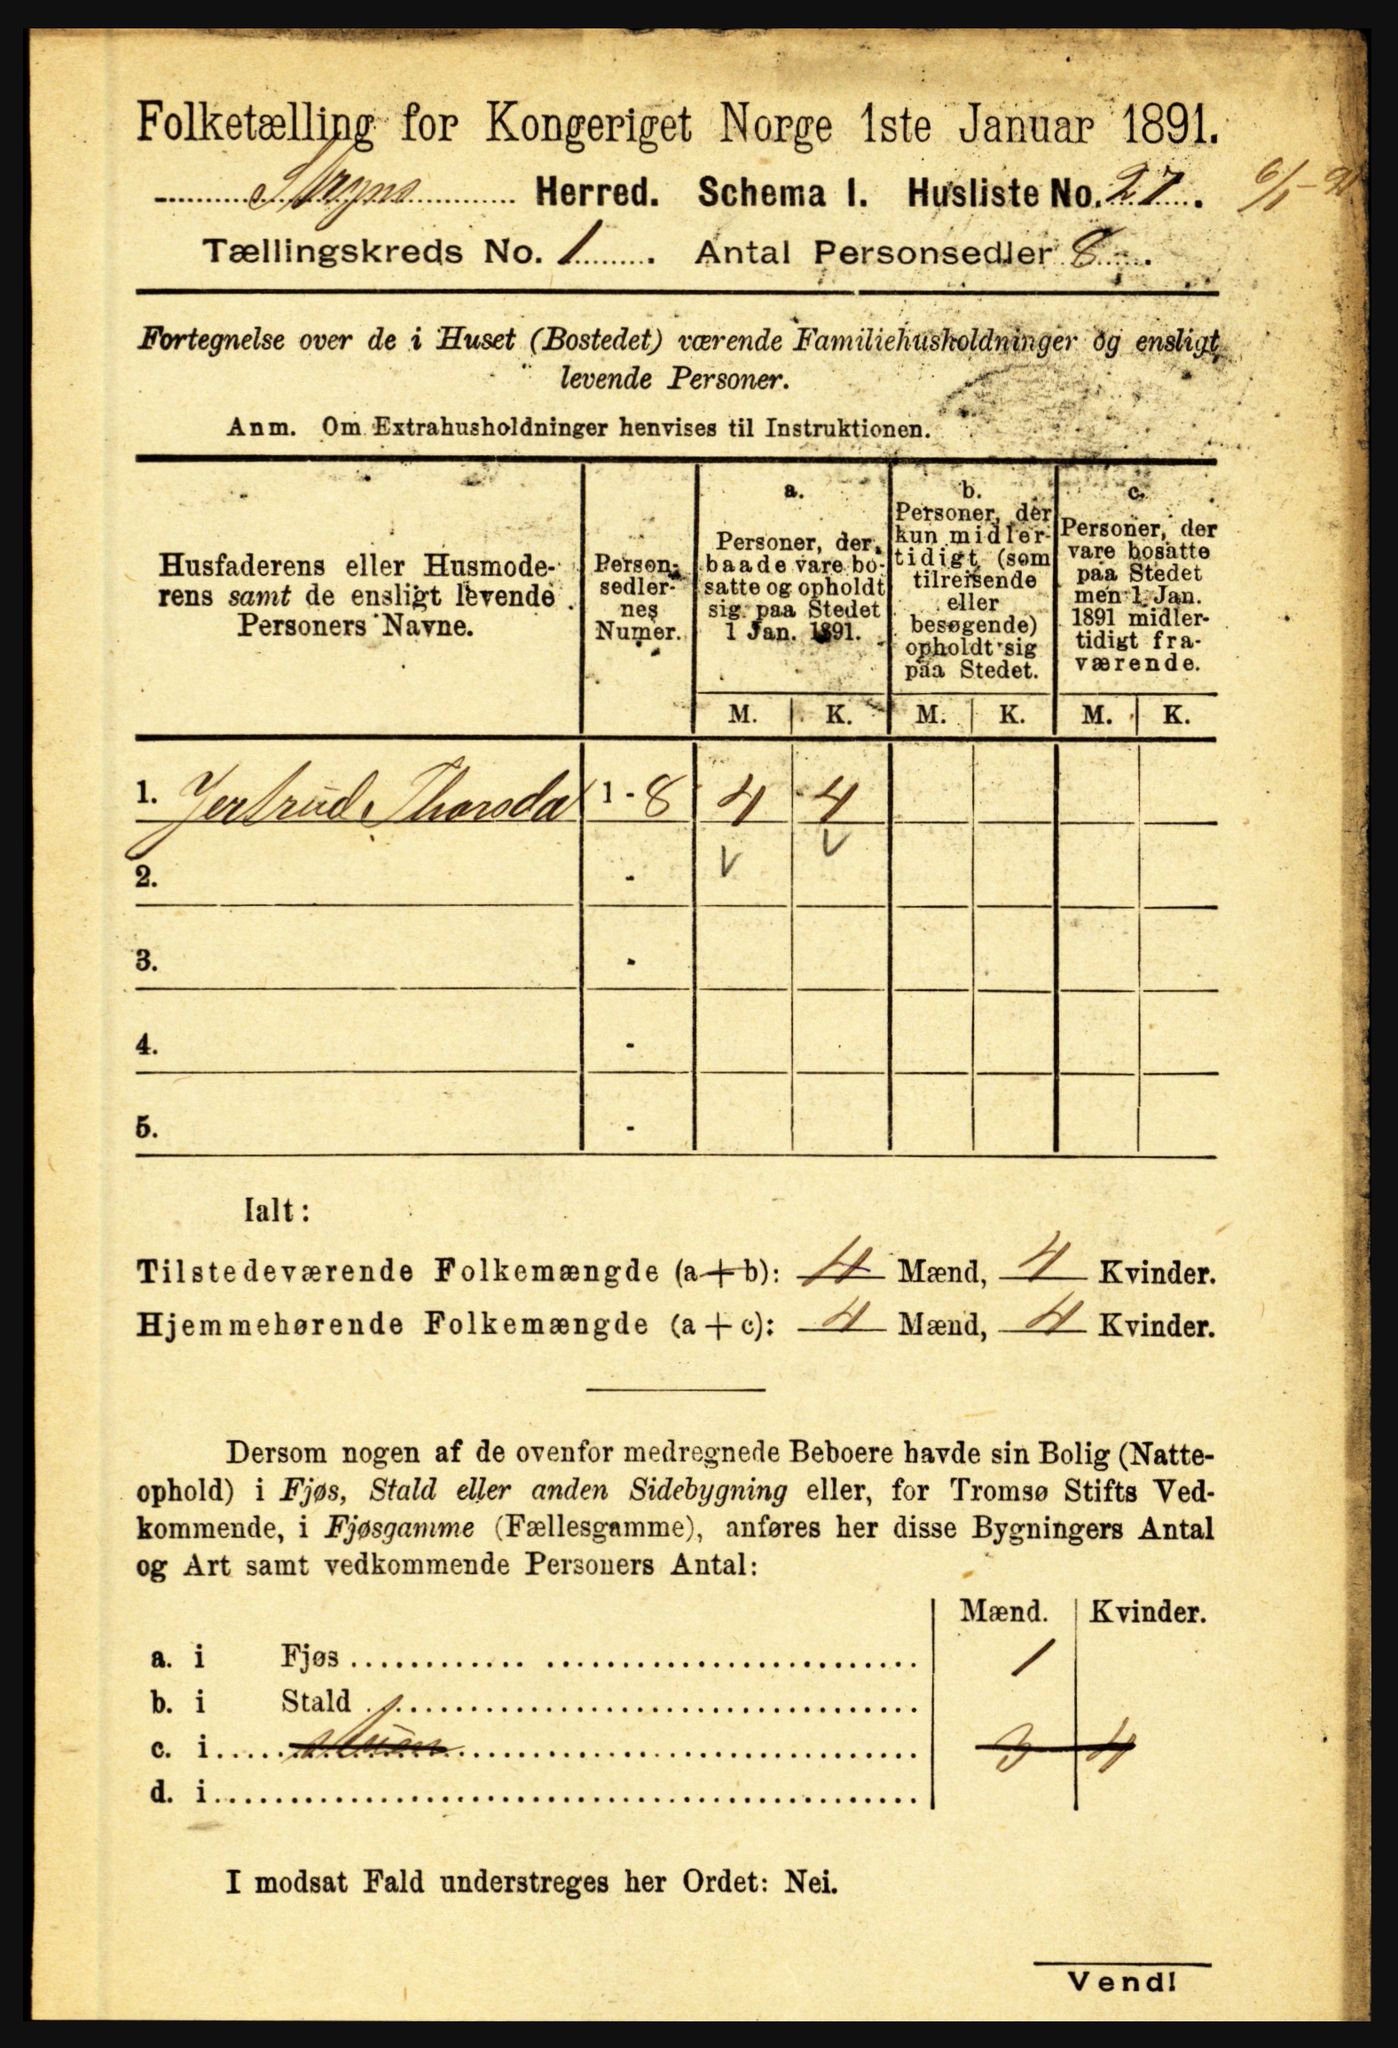 Folketælling for Kongeriget Norge 1ste Januar 1891.
Stryns Herred. Schema I. Husliste No. 27. 6/1-91
Tællingskreds No. 1. Antal Personsedler 8.
Fortegnelse over de i Huset (Bostedet) værende Familiehusholdninger og ensligt
levende Personer.
Anm. Om Extrahusholdninger henvises til Instruktionen.
Husfaderens eller Husmode-
rens samt de ensligt levende
Personers Navne.
Person-
sedler-
nes
Numer.
a.
Personer, der
baade vare bo-
satte og opholdt
sig paa Stedet
1 Jan. 1891.
b.
Personer, der
kun midler-
tidigt (som
tilreisende
eller
besøgende)
opholdt sig
paa Stedet.
c.
Personer, der
vare bosatte
paa Stedet
men 1 Jan.
1891 midler-
tidigt fra-
værende.
M. K. M. K. M. K.
1. Jertrud Thorsda 1-8 4 4
2. -
3. -
4. -
5. -
Ialt:
Tilstedeværende Folkemængde (a+b): 4 Mænd, 4 Kvinder.
Hjemmehørende Folkemængde (a+c): 4 Mænd, 4 Kvinder.
Dersom nogen af de ovenfor medregnede Beboere havde sin Bolig (Natte-
ophold) i Fjøs, Stald eller anden Sidebygning eller, for Tromsø Stifts Ved-
kommende, i Fjøsgamme (Fællesgamme), anføres her disse Bygningers Antal
og Art samt vedkommende Personers Antal:
Mænd. Kvinder.
a. i Fjøs 1
b. i Stald
c. i 3 4
d. i
I modsat Fald understreges her Ordet: Nei.
Vend!